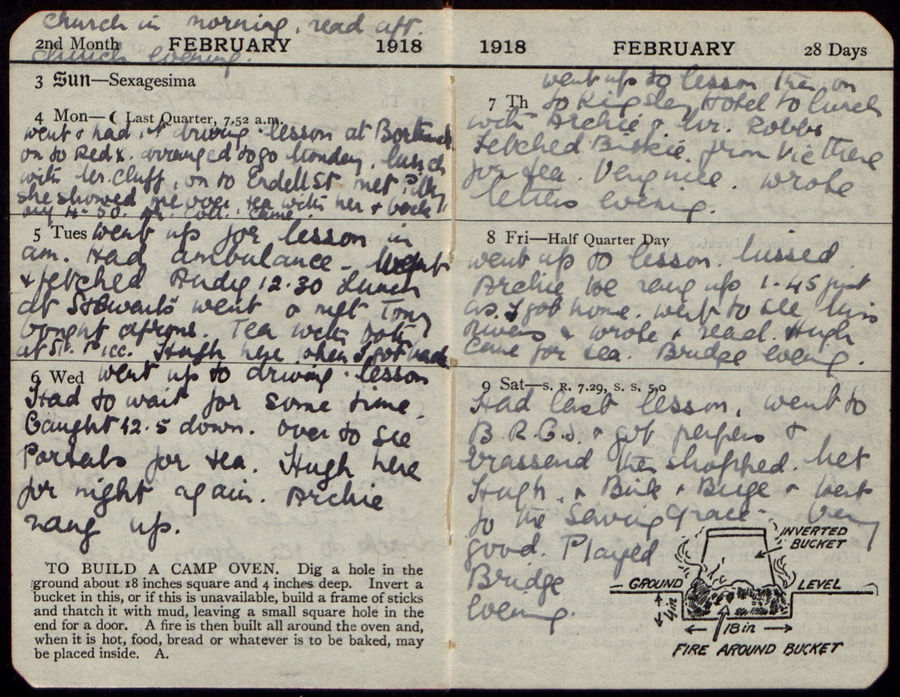 Church in morning, read aft.
2nd Month FEBRUARY 1918
Church evening.
3 Sun—Sexagesima
4 Mon—☾ Last Quarter, 7.52 a.m.
went & had 1st driving lesson at
on to Red X. arranged to go Monday, lunch
with Mr. Cluff, on to Endell St met
she showed me over, tea with her & back
5 Tues went up for lesson in
am. Had ambulance - went
& fetched Andy 12.30 Lunch
at Stewarts went & met Tony
bought aprons. Tea with both
at St. Picc. Hugh here when I got back
6 Wed went up to driving lesson
Had to wait for some time.
Caught 12.5 down. over to see
for tea. Hugh here
for night again. Archie
rang up.
TO BUILD A CAMP OVEN. Dig a hole in the
ground about 18 inches square and 4 inches deep. Invert a
bucket in this, or if this is unavailable, build a frame of sticks
and thatch it with mud, leaving a small square hole in the
end for a door. A fire is then built all around the oven and,
when it is hot, food, bread or whatever is to be baked, may
be placed inside. A.
1918 FEBRUARY 28 Days
went up to lesson then on
7 Th to Kingsley Hotel to lunch
with Archie & Mr. Robbs
Fetched from Vic there
for tea. Very nice. wrote
letters evening.
8 Fri—Half Quarter Day
went up to lesson. missed
Archie he rang up 1-45 just
as I got home. went to see Miss
& wrote & read. Hugh
came for tea. Bridge evening.
9 Sat—S. R. 7.29, S. S. 5.0
Had last lesson, went to
B.R.C.S. & got papers &
brassend then shopped. Met
Hugh, & & & went
to the Saving Grace. Very
good. Played
Bridge
evening.
INVERTED
BUCKET
GROUND LEVEL
4in
18in
FIRE AROUND BUCKET